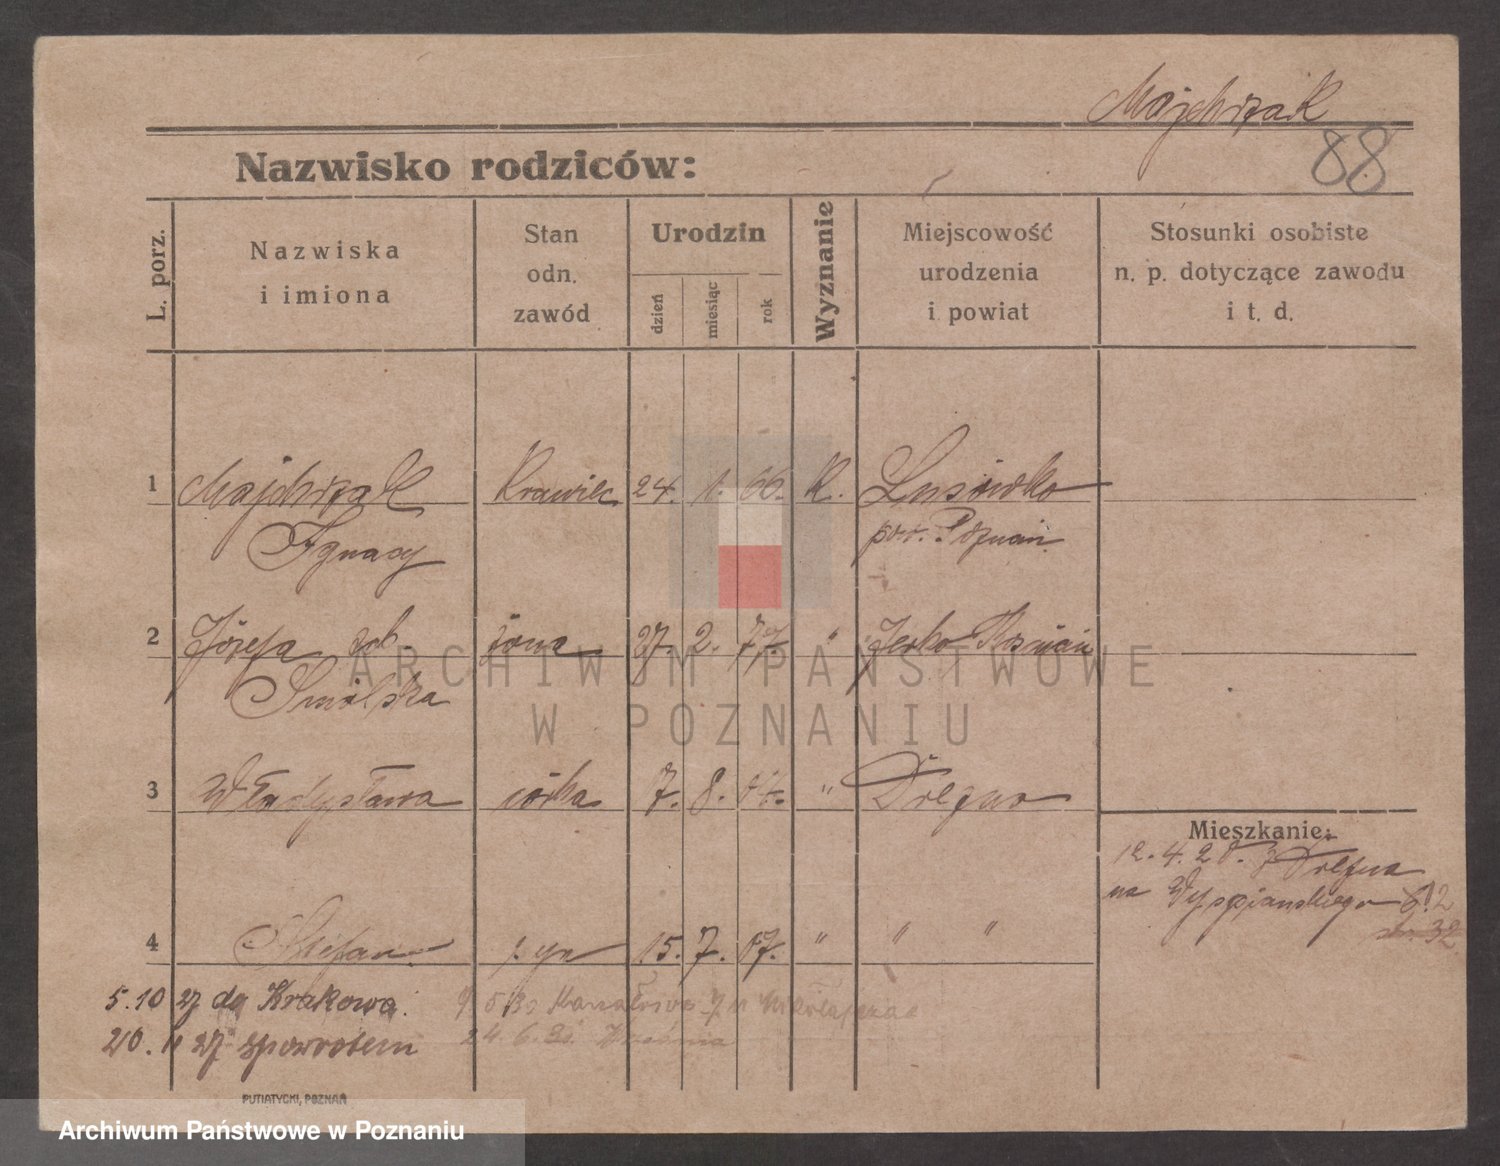 Majchrzak
88
Nazwisko rodziców:
L. porz.
Nazwiska
i imiona
Stan
odn.
zawód
Urodzin
dzień
miesiąc
rok
Wyznanie
Miejscowość
urodzenia
i powiat
Stosunki osobiste
n. p. dotyczące zawodu
i t. d.
1 Majchrzak Krawiec 24. 1. 66. K. Lusówko
Ignacy pow. Poznań
2 Józefa żona 27. 2. 77. "
Smolska
3 Władysława córka 7. 8. 04. "
4 Stefan syn 15. 7. 07. " " "
Mieszkanie:
12. 4. 20. z
na Wyspiańskiego
5.10 27 do Krakowa.
20.11 27 spowrotem
24.6.
PUTIATYCKI, POZNAŃ
ARCHIWUM PAŃSTWOWE
W POZNANIU
Archiwum Państwowe w Poznaniu